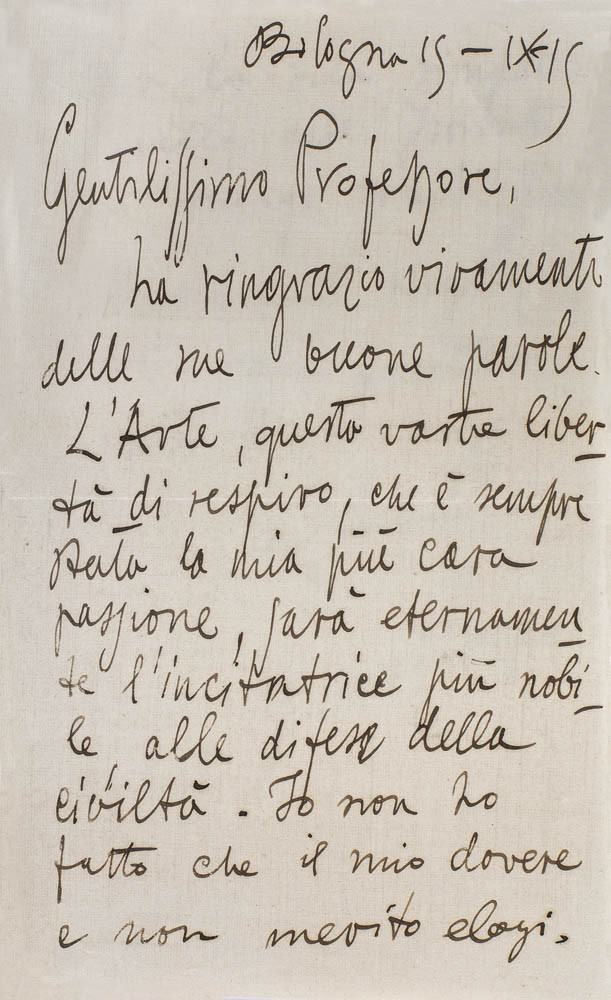 Bologna 15-IX-15
Gentilissimo Professore,
La ringrazio vivamente
delle sue buone parole.
L'Arte, questa vasta liber-
tà di respiro, che è sempre
stata la mia più cara
passione, sarà eternamen-
te l'incitatrice più nobi-
le, alle difese della
civiltà. Io non ho
fatto che il mio dovere
e non merito elogi.